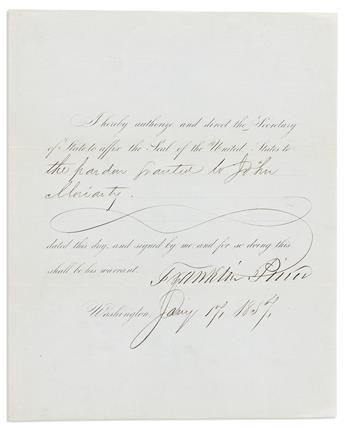 I hereby authorize and direct the Secretary
of State to affix the Seal of the United States to
the pardon granted to John
Moriarty.
dated this day, and signed by me and for so doing this
shall be his warrant.
Franklin Pierce
Washington, Jany 1857